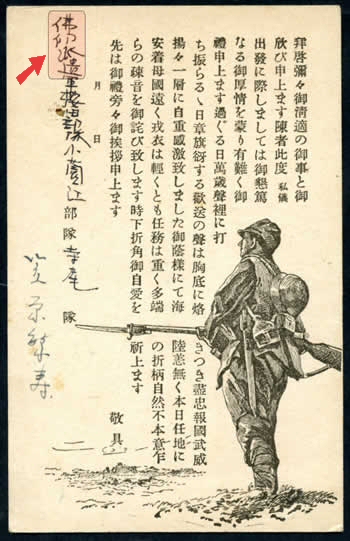 拜啓彌々御淸適の御事と御
欣び申上ます陳者此度 私儀
出發に際しましては御懇篤
なる御厚情を蒙り有難く御
禮申上ます過ぐる日萬歲聲裡に打
ち振らるゝ日章旗する歡送の聲は胸底に烙きつき盡忠報國武威
揚々一層に自重感激致しました御蔭樣にて海陸恙無く本日任地に
安着母國遠く戎衣は輕くとも任務は重く多端の折柄自然不本意乍
らの疎音を御詫び致します時下折角御自愛を祈上ます
先は御禮旁々御挨拶申上ます 敬具
月 日
佛印派遣軍 小薗江部隊寺尾隊